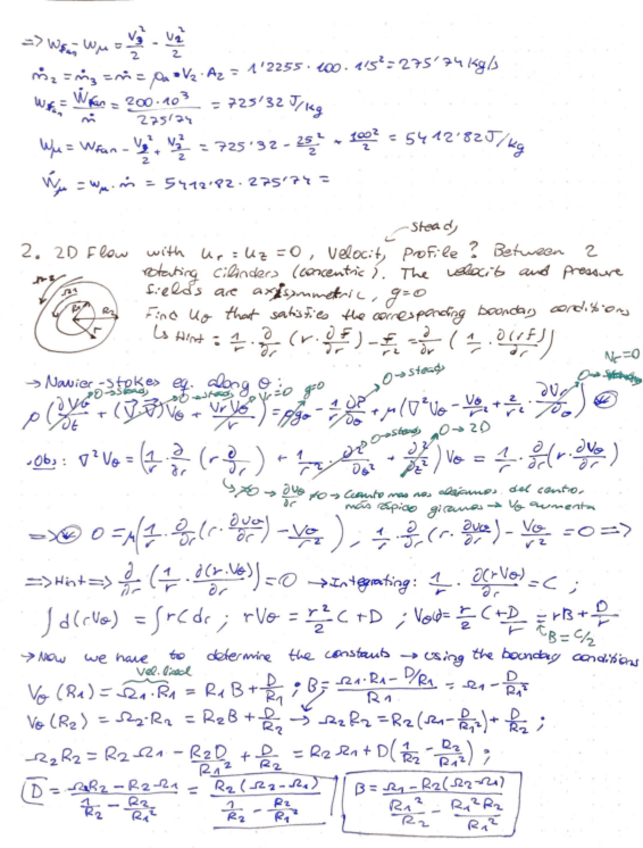 => w_fan - w_μ = V₃²/2 - V₂²/2
ṁ₂ = ṁ₃ = ṁ = ρa · V₂ · A₂ = 1'2255 · 100 · 1'5² = 275'74 Kg/s
w_fan = Ẇ_fan/ṁ = 200·10³/275'74 = 725'32 J/kg
w_μ = w_fan - V₃²/2 + V₂²/2 = 725'32 - 25²/2 + 100²/2 = 5412'82 J/kg
Ẇ_μ = w_μ · ṁ = 5412'82 · 275'74 =
Steady
2. 2D Flow with u_r = u_z = 0, Velocity profile? Between 2
rotating cilinders (concentric). The velocity and pressure
fields are axisymmetric, g=0
Find u_θ that satisfies the corresponding boundary conditions
↳ Hint: 1/r · ∂/∂r (r · ∂F/∂r) - F/r² = ∂/∂r (1/r · ∂(rF)/∂r)
Ω₂ Ω₁ R₁ R₂ r
V_r=0
→ Navier-Stokes eq. along θ: 0→steady 0→steady V_r=0 g=0 0→steady 0→steady
ρ(∂V_θ/∂t + (V·∇)V_θ + V_rV_θ/r) = ρg_θ - 1/r ∂P/∂θ + μ(∇²V_θ - V_θ/r² + 2/r² · ∂V_r/∂θ) ⊛
0→steady 0→2D
· Obs: ∇²V_θ = (1/r · ∂/∂r (r ∂/∂r) + 1/r² · ∂²/∂θ² + ∂²/∂z²) V_θ = 1/r · ∂/∂r (r · ∂V_θ/∂r)
↳ ≠0 → ∂V_θ/∂r ≠0 → Cuanto mas nos alejamos del centro,
más rápido giramos → V_θ aumenta
=> ⊛ 0 = μ(1/r · ∂/∂r (r · ∂V_θ/∂r) - V_θ/r²), 1/r · ∂/∂r (r · ∂V_θ/∂r) - V_θ/r² = 0 =>
=> Hint => ∂/∂r (1/r · ∂(r·V_θ)/∂r) = 0 → Integrating: 1/r · ∂(rV_θ)/∂r = C ;
∫d(rV_θ) = ∫rC dr ; rV_θ = r²/2 C + D ; V_θ = r/2 C + D/r = rB + D/r
B = C/2
→ Now we have to determine the constants → using the boundary conditions
Vel. lineal
V_θ(R₁) = Ω₁·R₁ = R₁B + D/R₁ ; B = (Ω₁·R₁ - D/R₁)/R₁ = Ω₁ - D/R₁²
V_θ(R₂) = Ω₂·R₂ = R₂B + D/R₂ → Ω₂R₂ = R₂(Ω₁ - D/R₁²) + D/R₂ ;
Ω₂R₂ = R₂Ω₁ - R₂D/R₁² + D/R₂ = R₂Ω₁ + D(1/R₂ - R₂/R₁²) ;
D = (Ω₂R₂ - R₂Ω₁)/(1/R₂ - R₂/R₁²) = R₂(Ω₂-Ω₁)/(1/R₂ - R₂/R₁²)
B = Ω₁ - R₂(Ω₂-Ω₁)/(R₁²/R₂ - R₁²R₂/R₁²)